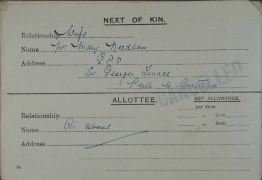 NEXT OF KIN.
Relationship Wife
Name Mrs Mary Needham
Address G.P.O
St Georges Terrace
Perth W. Australia
CANCELLED
ALLOTTEE.
SEP. ALLOWANCE.
per diem
Relationship „ from
Name As above „ from
Address